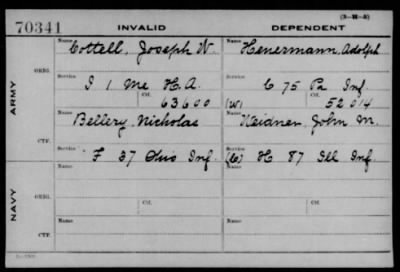 (3-M-8)
70341 INVALID DEPENDENT
Name Cottell, Joseph W. Name Henermann, Adolph
ORIG.
Service I 1 Me H.A. Service C 75 Pa Inf.
Ctf. 63600 (W) Ctf. 52014
ARMY
Name Bellery, Nicholas Name Weidner, John M.
CTF.
Service F 37 Ohio Inf. Service H 87 Ill Inf.
Name Name
ORIG.
Service Service
NAVY
Ctf. Ctf.
Name Name
CTF.
Service Service